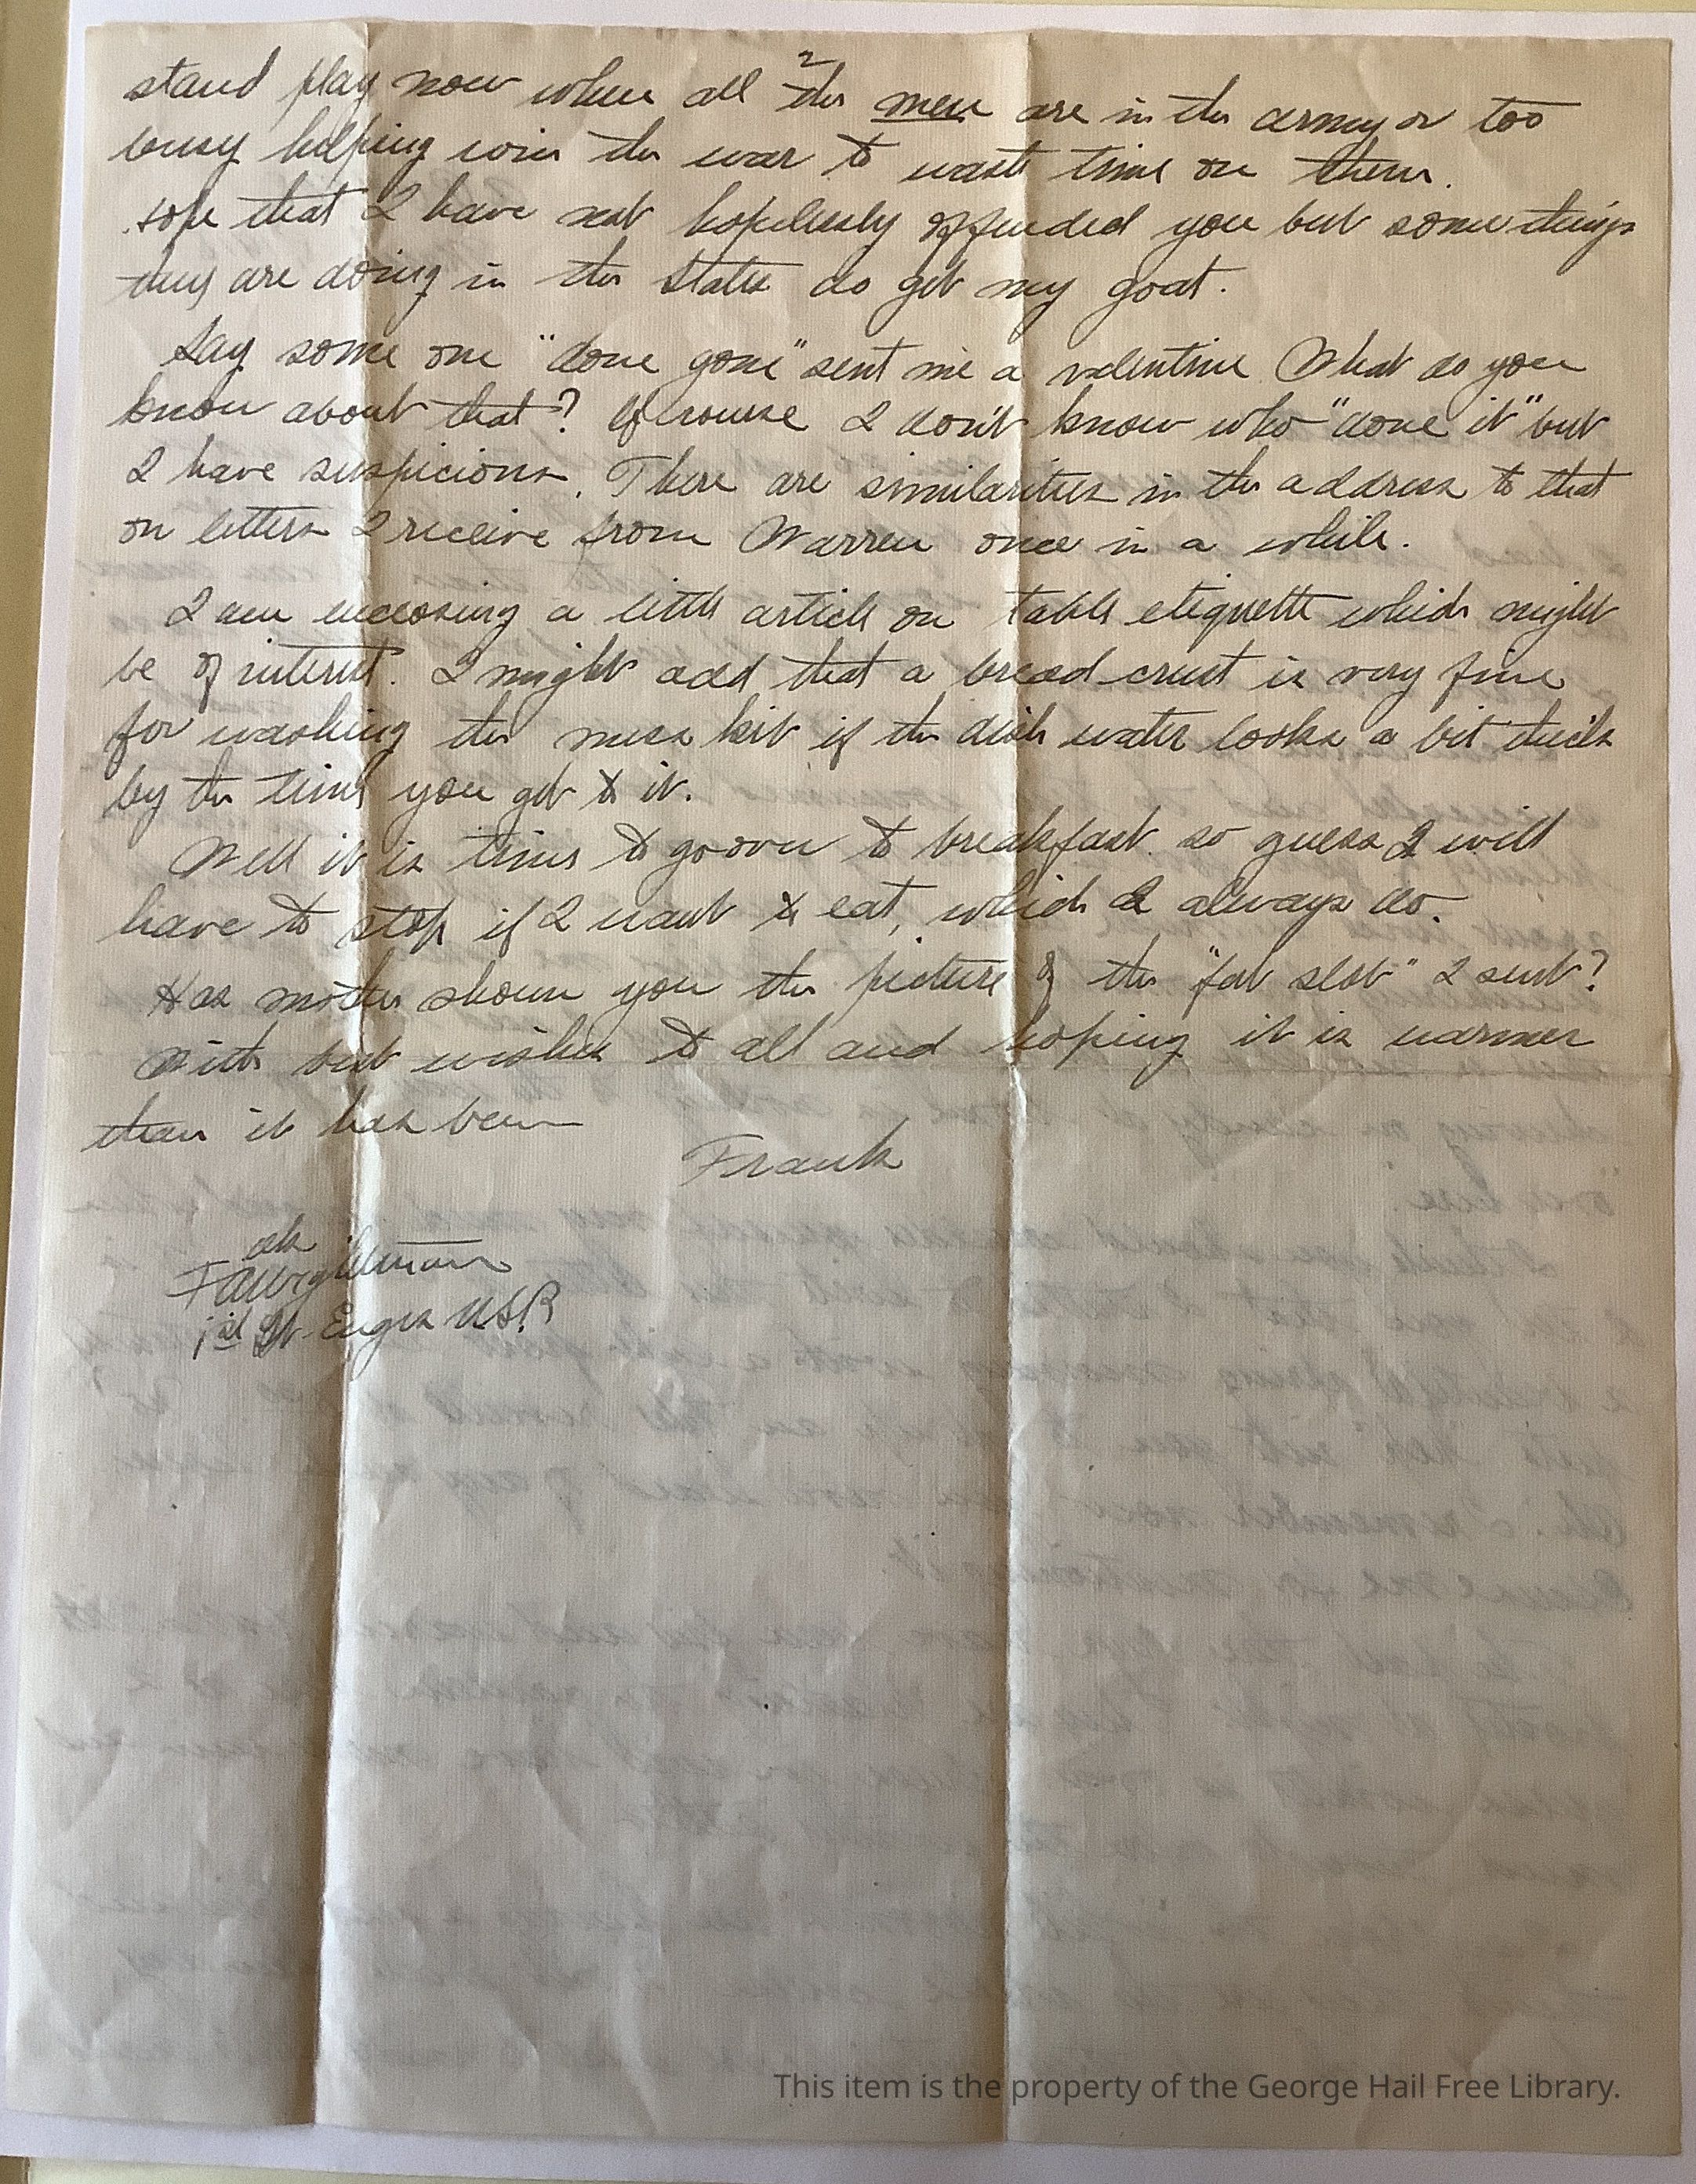 2
stand play now when all the men are in the army or too
busy helping win the war to waste time on them.
hope that I have not hopelessly offended you but some things
they are doing in the States do get my goat.
Say some one "done gone" sent me a valentine What do you
know about that? Of course I don't know who "done it" but
I have suspicions. There are similarities in the address to that
on letters I receive from Warren once in a while.
I am enclosing a little article on table etiquette which might
be of interest. I might add that a bread crust is very fine
for washing the mess kit if the dish water looks a bit thick
by the time you get to it.
Well it is time to go over to breakfast so guess I will
have to stop if I want to eat, which I always do.
Has mother shown you the picture of the "fat slob" I sent?
With best wishes to all and hoping it is warmer
than it has been
Frank
ok
FAWrightman
1st Lt. Engrs USR
This item is the property of the George Hail Free Library.